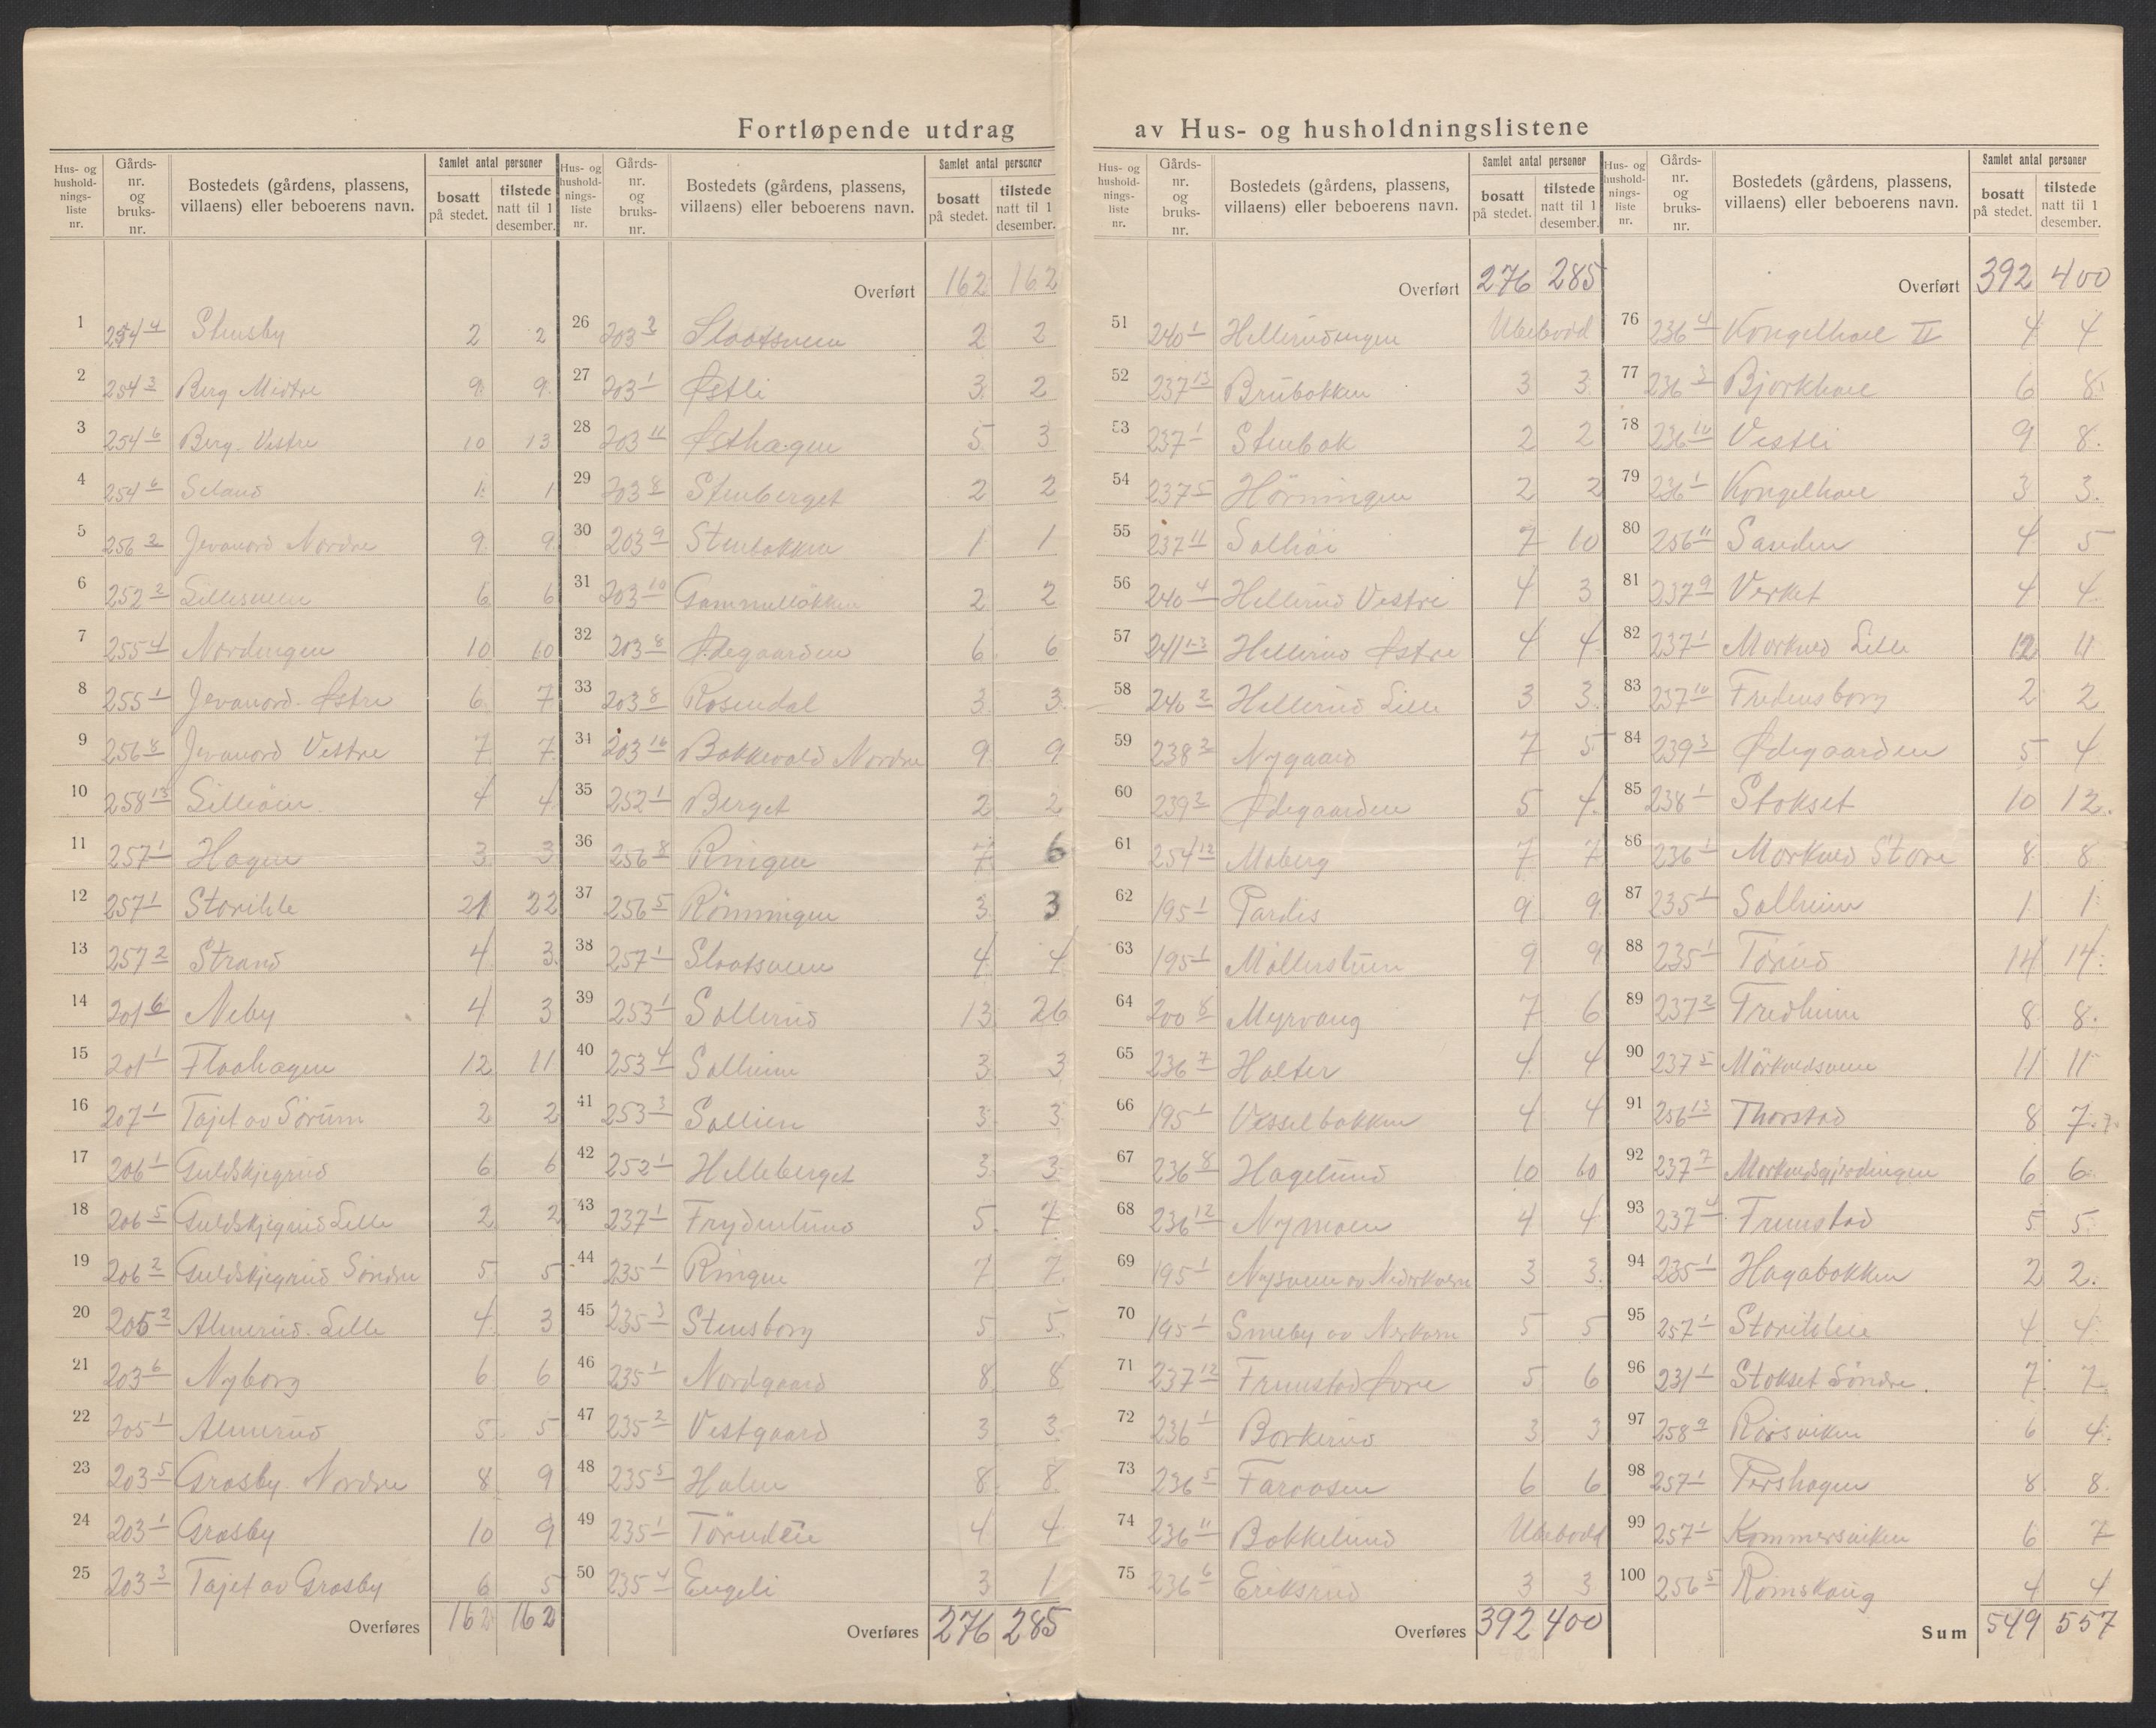 Fortløpende utdrag av Hus- og husholdningslistene
Hus- og hushold-nings-liste nr. | Gårds-nr. og bruks-nr. | Bostedets (gårdens, plassens, villaens) eller beboerens navn. | Samlet antal personer bosatt på stedet. | tilstede natt til 1 desember.
1 254/4 Stensby 2 2
2 254/3 Berg Midtre 9 9
3 254/6 Berg Vestre 10 13
4 254/6 1 1
5 256/2 Jevanord Nordre 9 9
6 252/2 6 6
7 255/4 Nordengen 10 10
8 255/1 Jevanord Østre 6 7
9 256/8 Jevanord Vestre 7 7
10 258/13 4 4
11 257/1 Hagen 3 3
12 257/1 21 22
13 257/2 Strand 4 3
14 201/6 Neby 4 3
15 201/1 Flaahagen 12 11
16 207/1 Tajet av Sörum 2 2
17 206/1 Guldskjegrud 6 6
18 206/5 Guldskjegrud Lille 2 2
19 206/2 Guldskjegrud Söndre 5 5
20 205/2 Almerud Lille 4 3
21 203/6 Nyborg 6 6
22 205/1 Almerud 5 5
23 203/5 Grasby Nordre 8 9
24 203/1 Grasby 10 9
25 203/3 Tajet av Grasby 6 5
Overføres 162 162
Hus- og hushold-nings-liste nr. | Gårds-nr. og bruks-nr. | Bostedets (gårdens, plassens, villaens) eller beboerens navn. | Samlet antal personer bosatt på stedet. | tilstede natt til 1 desember.
Overført 162 162
26 203/2 Slaatsveen 2 2
27 203/1 Østli 3 2
28 203/11 Østhagen 5 3
29 203/8 Stenberget 2 2
30 203/9 Stenbakken 1 1
31 203/10 Gammellökken 2 2
32 203/8 Ødegaarden 6 6
33 203/8 Rosendal 3 3
34 203/16 Bakkevold Nordre 9 9
35 252/1 Berget 2 2
36 256/8 Ringen 7 6
37 256/5 Rönningen 3 3
38 257/1 Slaatsveen 4 4
39 253/1 Sollerud 13 26
40 253/4 Solheim 3 3
41 253/3 Sollien 3 3
42 252/1 Helleberget 3 3
43 237/1 Frydenlund 5 7
44 235/1 Ringen 7 7
45 235/3 Stensborg 5 5
46 235/1 Nordgaard 8 8
47 235/2 Vestgaard 3 3
48 235/5 Holen 8 8
49 235/1 4 4
50 235/4 Engeli 3 1
Overføres 276 285
Hus- og hushold-nings-liste nr. | Gårds-nr. og bruks-nr. | Bostedets (gårdens, plassens, villaens) eller beboerens navn. | Samlet antal personer bosatt på stedet. | tilstede natt til 1 desember.
Overført 276 285
51 240/1 Hellerudengen Ubebodd
52 237/13 Brubakken 3 3
53 237/1 Stenbak 2 2
54 237/5 Hörningen 2 2
55 237/11 Solhöi 7 10
56 240/4 Hellerud Vestre 4 3
57 241/1-3 Hellerud Østre 4 4
58 240/2 Hellerud Lille 3 3
59 238/2 Nygaard 7 5
60 239/2 Ødegaarden 5 4
61 254/12 Moberg 7 7
62 195/1 Pardis 9 9
63 195/1 9 9
64 200/8 Myrvang 7 6
65 236/7 Holter 4 4
66 195/1 Vesselbakken 4 4
67 236/8 Hagelund 10 10
68 236/12 Nymoen 4 4
69 195/1 3 3
70 195/1 Smeby av 5 5
71 237/12 5 6
72 236/1 Borkerud 3 3
73 236/5 Faraasen 6 6
74 236/11 Bakkelund Ubebodd
75 236/6 Eriksrud 3 3
Overføres 392 400
Hus- og hushold-nings-liste nr. | Gårds-nr. og bruks-nr. | Bostedets (gårdens, plassens, villaens) eller beboerens navn. | Samlet antal personer bosatt på stedet. | tilstede natt til 1 desember.
Overført 392 400
76 236/4 Kongelhoel II 4 4
77 236/3 Bjorkhoel 6 8
78 236/10 Vestli 9 8
79 236/1 Kongelhoel 3 3
80 256/11 Sanden 4 5
81 237/9 Verket 4 4
82 237/1 Morkved Lille 12 11
83 237/10 Fredensborg 2 2
84 239/3 Ødegaarden 5 4
85 238/1 Stokset 10 12
86 236/1 Morkved Store 8 8
87 235/1 Solheim 1 1
88 235/1 Törud 14 14
89 237/2 Fredheim 8 8
90 237/5 Mörkvedsveen 11 11
91 256/13 Thorstad 8 7
92 237/7 Morkvedsgjerdingen 6 6
93 237/4 5 5
94 235/1 Hagabakken 2 2
95 257/1 4 4
96 231/1 Stokset Söndre 7 7
97 258/9 Rorsviken 6 4
98 257/1 Pershagen 8 8
99 257/1 Kommersviken 6 7
100 256/5 Romskaug 4 4
Sum 549 557